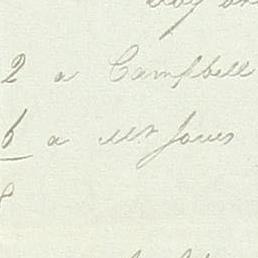 2 a Campbell
6 a Mr Jones
8